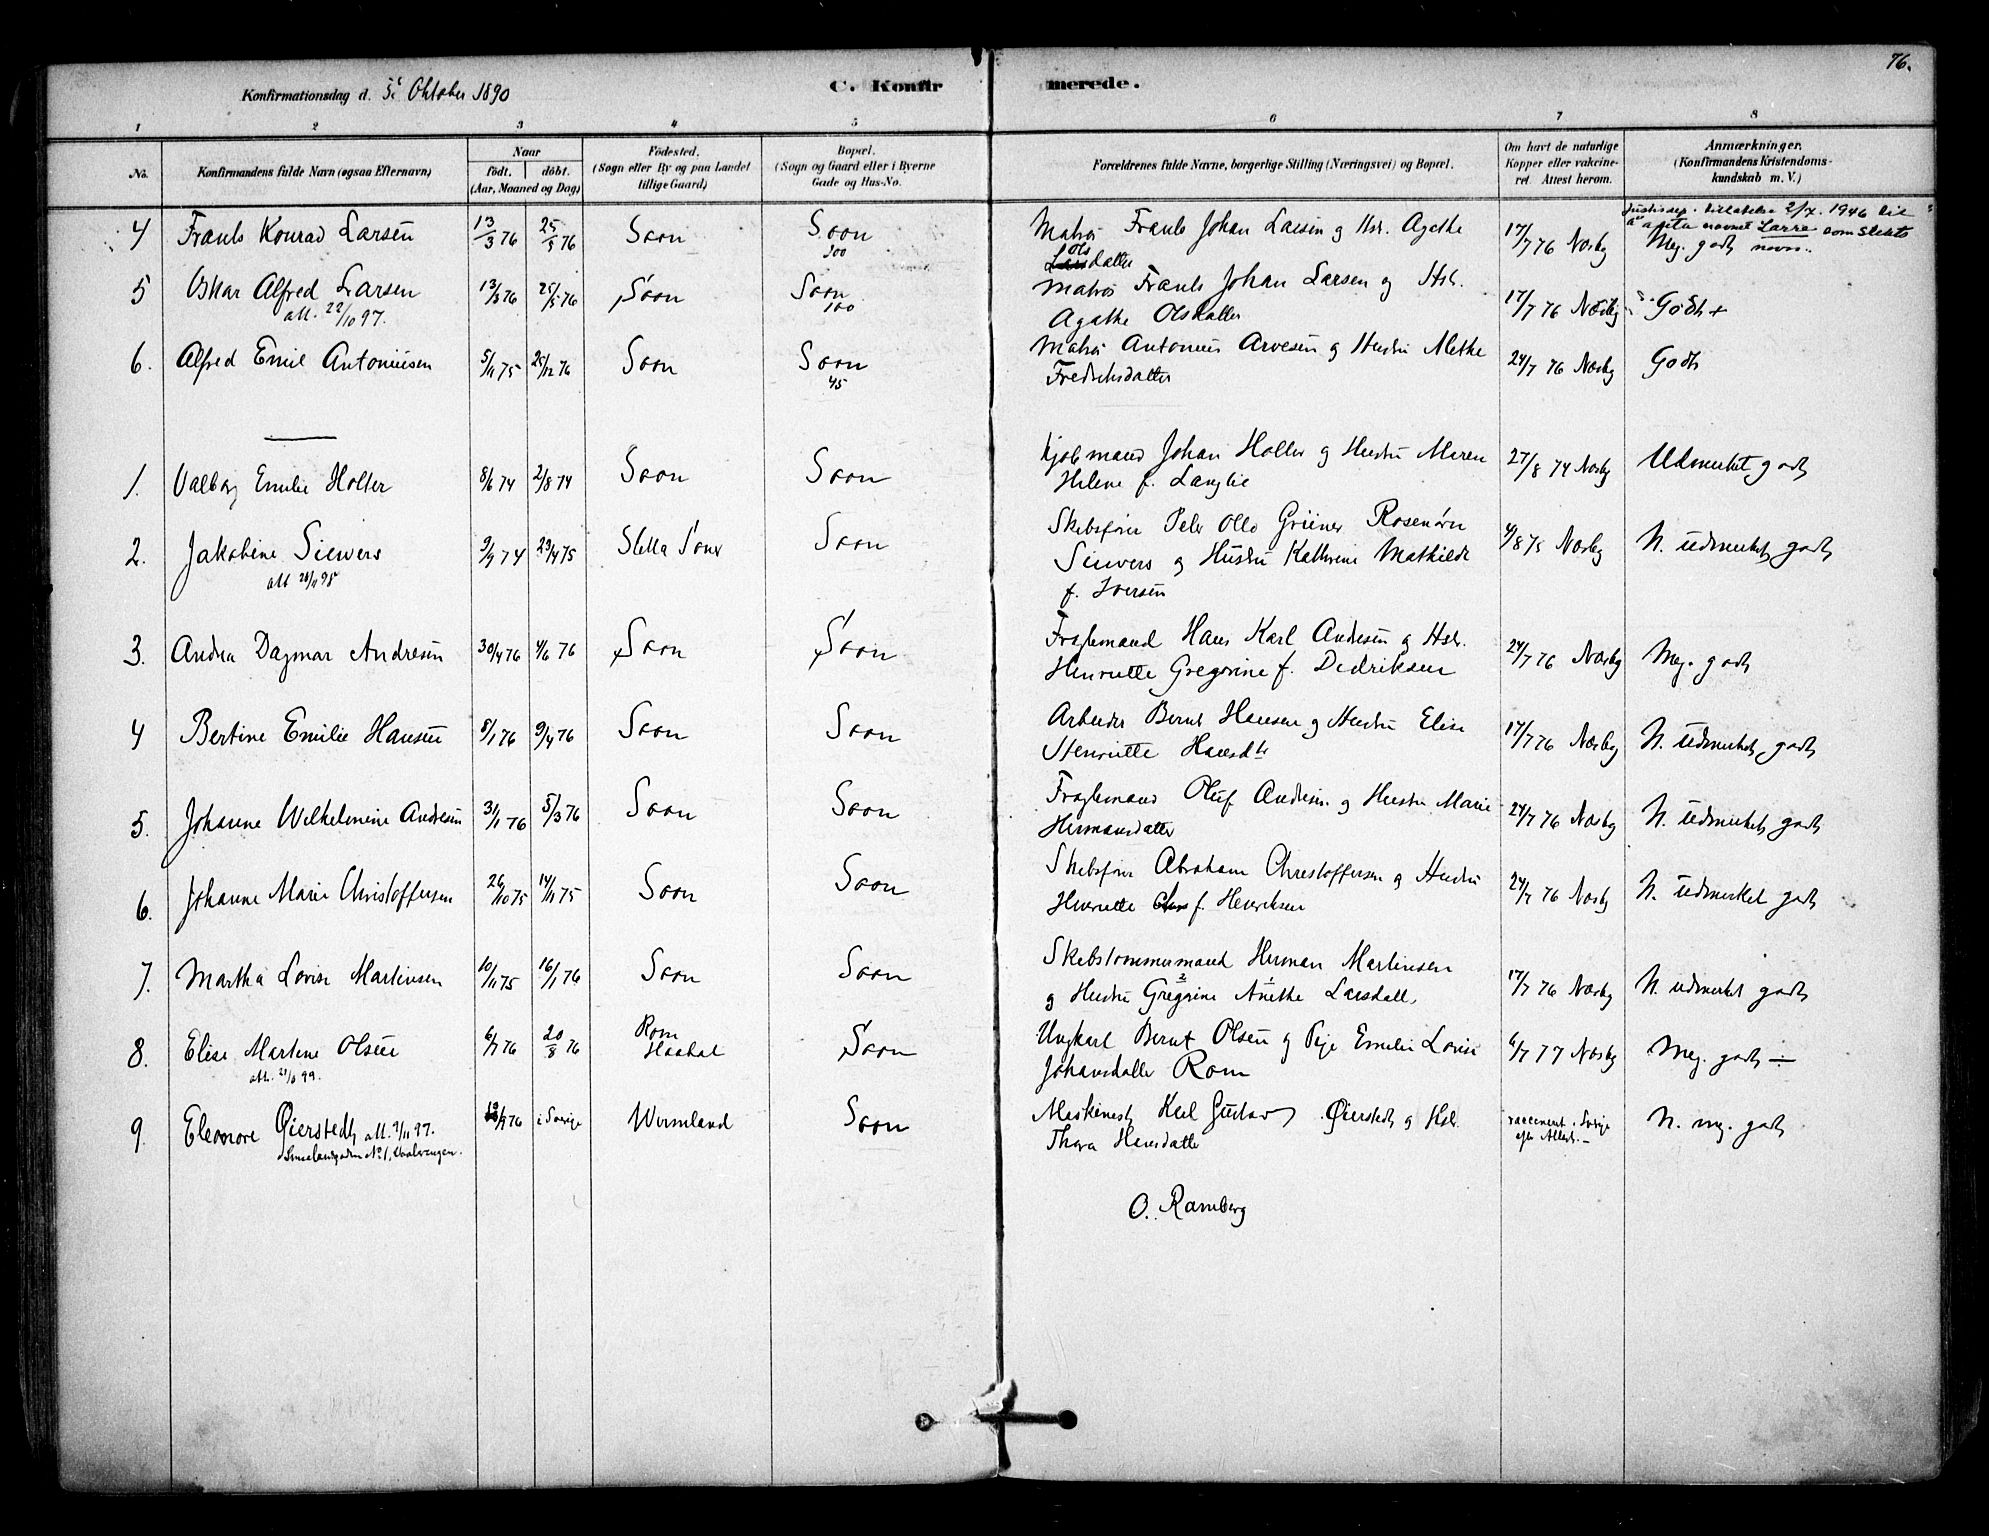 76.
Konfirmationsdag d. 5te Oktober 1890
C. Konfir merede.
1 2 3 4 5 6 7 8
No.
Konfirmandens fulde Navn (ogsaa Efternavn)
Naar
födt. döbt.
(Aar, Maaned og Dag)
Födested.
(Sogn eller By og paa Landet
tillige Gaard)
Bopæl.
(Sogn og Gaard eller i Byerne
Gade og Hus-No.
Forældrenes fulde Navne, borgerlige Stilling (Næringsvei) og Bopæl.
Om havt de naturlige
Kopper eller vakcine-
ret Attest herom.
Anmærkninger.
(Konfirmandens Kristendoms-
kundskab m. V.)
Justisdep. tillatelse 2/7. 1946 til
å anta navnet Larre som slekts
navn.
4 Frants Konrad Larsen 13/3 76 25/5 76 Soon Soon Matros Frants Johan Larsen og Hst. Agathe 17/7 76 Næsby Meg. godt
100
Lars Olsdatter
5 Oskar Alfred Larsen 13/3 76 25/5 76 Soon Soon Matros Frants Johan Larsen og Hst. 17/7 76 Næsby Godt +
100
att. 22/10 97. Agathe Olsdatter
6. Alfred Emil Antoniusen 5/11 75 25/12 76 Soon Soon Matros Antonius Arvesen og Hustru Methe 24/7 76 Næsby Godt
45
Fredriksdatter
1. Valborg Emilie Holter 8/6 74 2/8 74 Soon Soon Kjøbmand Johan Holter og Hustru Maren 27/8 74 Næsby Udmerket godt
Helene f. Langlie
2. Jakobine Siewers 9/9 74 29/4 75 Sletta Soner Soon Skibsfører Peter Otto Grüner Rosenørn 4/8 75 Næsby N. udmerket godt
att 28/11 95 Siewers og Hustru Kathrine Mathilde
f. Iversen
3. Andrea Dagmar Andresen 30/4 76 4/6 76 Soon Soon Fragtemand Hans Karl Andresen og Hst. 24/7 76 Næsby Meg. godt
Henriette Gregorine f. Didriksen
4 Bertine Emilie Hansen 8/1 76 9/4 76 Soon Soon Arbeider Bernt Hansen og Hustru Elise 17/7 76 Næsby N. udmerket godt
Henriette Hansdtr
5. Johanne Wilhelmine Andresen 3/1 76 5/3 76 Soon Soon Fragtemand Oluf Andresen og Hustru Marie 24/7 76 Næsby N. udmerket godt
Hermansdatter
6. Johanne Marie Christoffersen 26/10 75 14/11 75 Soon Soon Skibsfører Abraham Christoffersen og Hustru 24/7 76 Næsby N. udmerket godt
Henriette f. Henriksen
7. Martha Lovise Martinsen 10/11 75 16/1 76 Soon Soon Skibstømmermand Herman Martinsen 17/7 76 Næsby N. udmerket godt
og Hustru Gregorine Anethe Larsdatt.
8. Elise Martine Olsen 6/7 76 20/8 76 Rom Soon Ungkarl Bernt Olsen og Pige Emilie Lovise 6/7 77 Næsby Meg. godt ÷
att. 21/6 99. Haabøl Johansdatter Rom
9. Eleonore Øierstedt att. 9/11 97. 12/9 76 i Sverige Wermland Soon Maskinest Karl Gustav Øierstedt og Hst. vaccineret i Sverige N. meg. godt
Smaalensgaden No 1, Vaalerengen. Thora Hansdatter efter Attest.
O. Ramberg